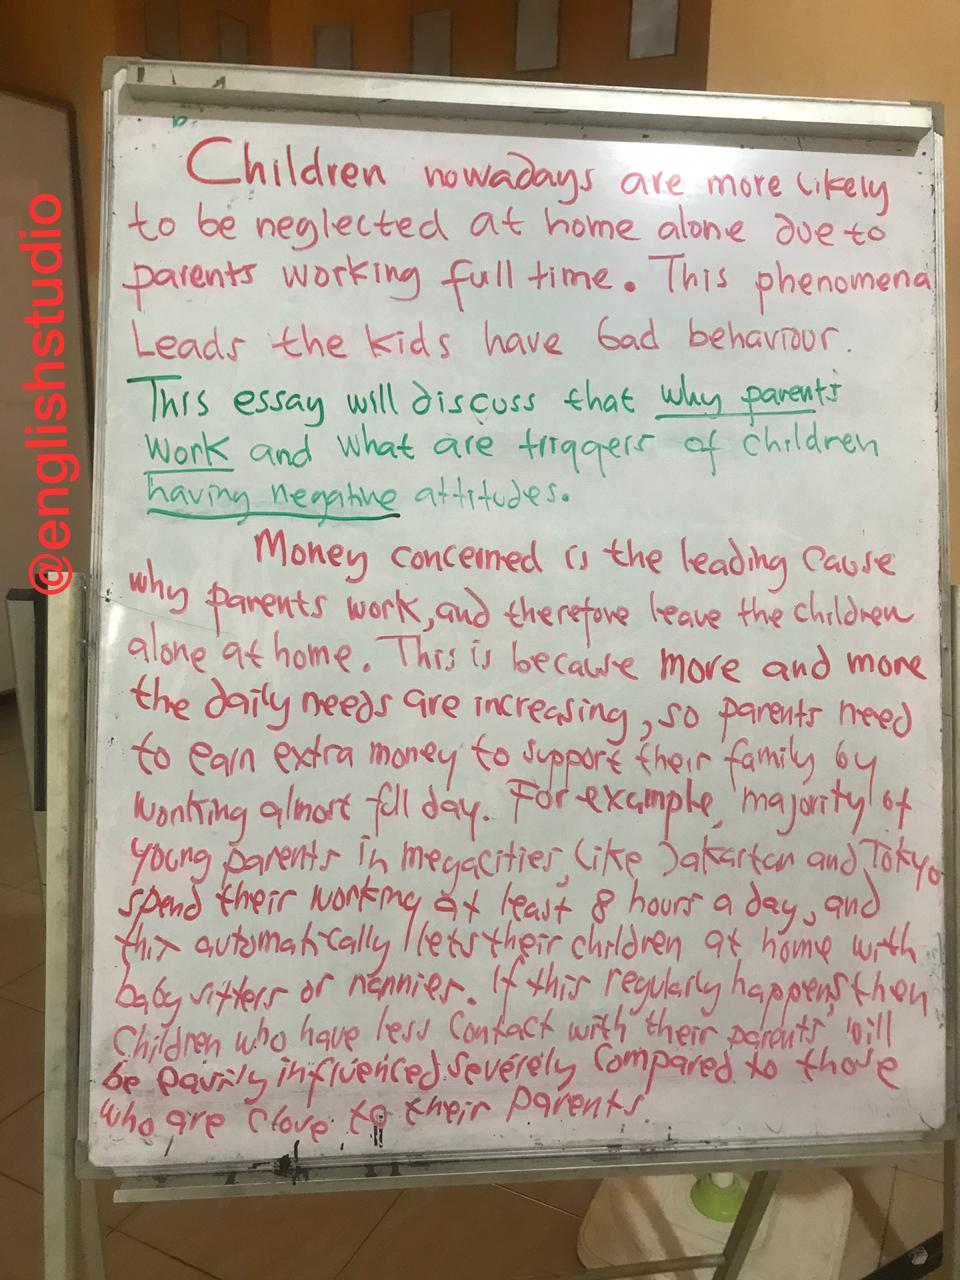 Children nowadays are more likely
to be neglected at home alone due to
parents working full time. This phenomena
Leads the kids have bad behaviour.
This essay will discuss that why parents
work and what are triggers of children
having negative attitudes.
Money concerned is the leading cause
why parents work, and therefore leave the children
alone at home. This is because more and more
the daily needs are increasing, so parents need
to earn extra money to support their family by
working almost full day. For example, majority of
young parents in megacities, like Jakartan and Tokyo
spend their working at least 8 hours a day, and
this automatically lets their children at home with
babysitters or nannies. If this regularly happens, then
children who have less contact with their parents will
be influenced severely compared to those
who are close to their parents.
@englishstudio